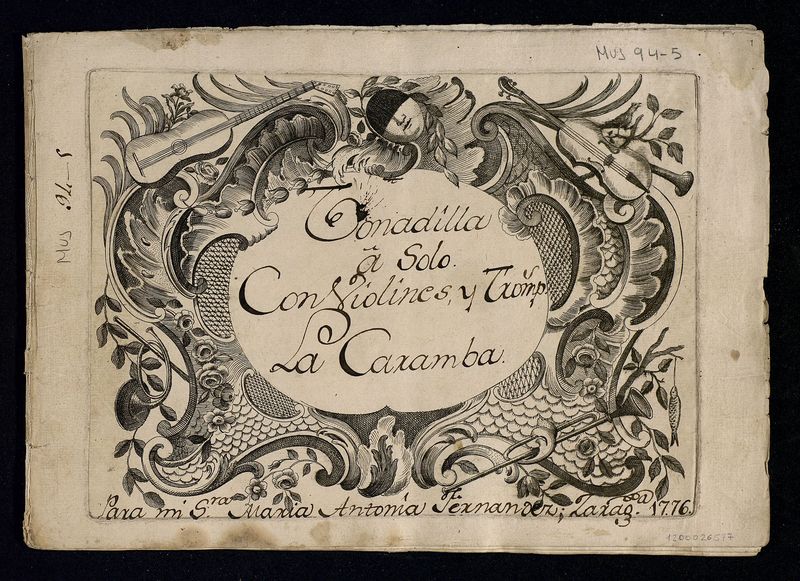 MUS 94-5
MUS 94-5
Tonadilla
â Solo.
Con Violines, y Tromp.ˢ
La Caramba.
Para mi S.ʳᵃ Maria Antonia Fernandez; Zarag.ᶻᵃ 1776.
1200026517